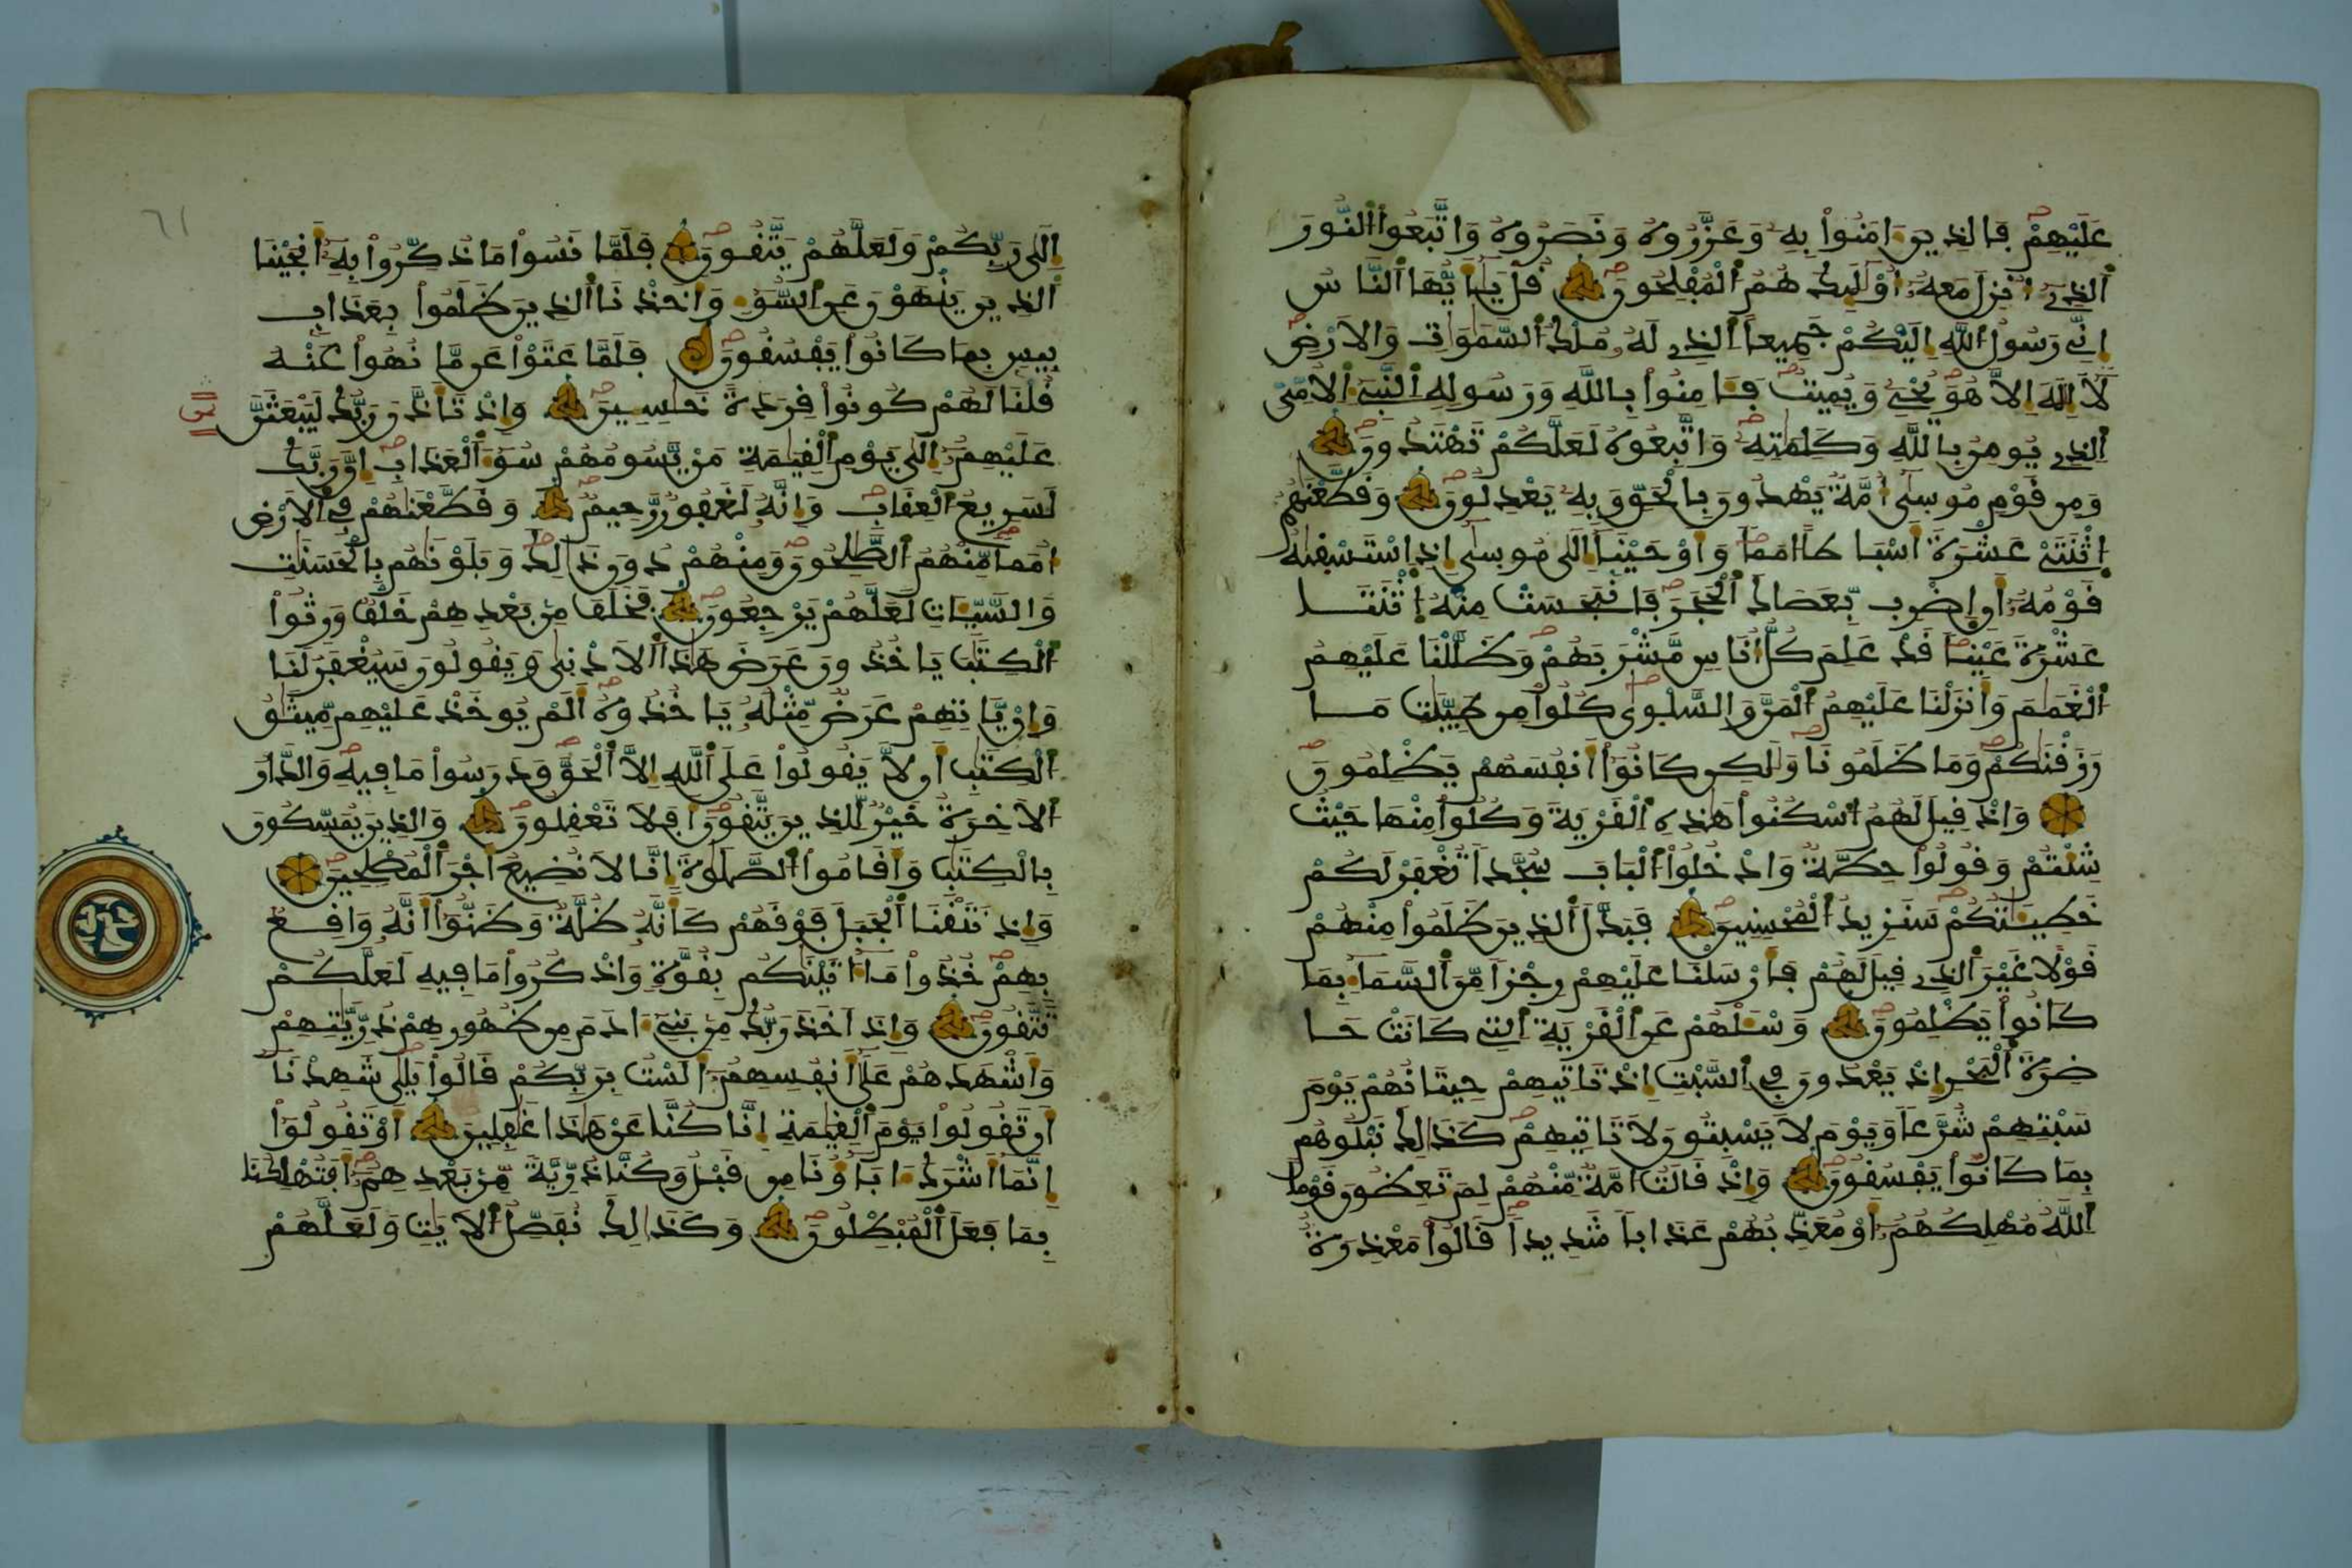 عَلَيْهِمْ فَالذِينَ ءَامَنُواْ بِهِۦ وَعَزَّرُوهُ وَنَصَرُوهُ وَاتَّبَعُواْ النُّورَ
اَلذِےٓ أُنزِلَ مَعَهُۥٓ أُوْلَٰٓئِكَ هُمُ اُلْمُفْلِحُونَ قُلْ يَٰٓأَيُّهَا اَلنَّاسُ
إِنِّے رَسُولُ اُللَّهِ إِلَيْكُمْ جَمِيعاً اَلذِے لَهُۥ مُلْكُ اُلسَّمَٰوَٰتِ وَالَارْضِ
لَآ إِلَٰهَ إِلَّا هُوَ يُحْيِۦ وَيُمِيتُ فَـَٔامِنُواْ بِاللَّهِ وَرَسُولِهِ اِلنَّبِےٓءِ اِلُامِّيِّ
اِلذِے يُومِنُ بِاللَّهِ وَكَلِمَٰتِهِۦ وَاتَّبِعُوهُ لَعَلَّكُمْ تَهْتَدُونَ
وَمِن قَوْمِ مُوسَىٰٓ أُمَّةٌ يَهْدُونَ بِالْحَقِّ وَبِهِۦ يَعْدِلُونَ وَقَطَّعْنَٰهُمُ
اُثْنَتَےْ عَشْرَةَ أَسْبَاطاً أُمَماً وَأَوْحَيْنَآ إِلَىٰ مُوسَىٰٓ إِذِ اِسْتَسْقَىٰهُ
قَوْمُهُۥٓ أَنِ اِضْرِب بِّعَصَاكَ اَلْحَجَرَ فَانۢبَجَسَتْ مِنْهُ اُثْنَتَا
عَشْرَةَ عَيْناً قَدْ عَلِمَ كُلُّ أُنَاسٍ مَّشْرَبَهُمْ وَظَلَّلْنَا عَلَيْهِمُ
اُلْغَمَٰمَ وَأَنزَلْنَا عَلَيْهِمُ اُلْمَنَّ وَالسَّلْوَىٰ كُلُواْ مِن طَيِّبَٰتِ مَا
رَزَقْنَٰكُمْ وَمَا ظَلَمُونَا وَلَٰكِن كَانُوٓاْ أَنفُسَهُمْ يَظْلِمُونَ
وَإِذْ قِيلَ لَهُمُ اُسْكُنُواْ هَٰذِهِ اِلْقَرْيَةَ وَكُلُواْ مِنْهَا حَيْثُ
شِئْتُمْ وَقُولُواْ حِطَّةٌ وَادْخُلُواْ اُلْبَابَ سُجَّداً تُغْفَرْ لَكُمْ
خَطِيٓـَٰٔتُكُمْ سَنَزِيدُ اُلْمُحْسِنِينَ فَبَدَّلَ اَلذِينَ ظَلَمُواْ مِنْهُمْ
قَوْلاً غَيْرَ اَلذِے قِيلَ لَهُمْ فَأَرْسَلْنَا عَلَيْهِمْ رِجْزاً مِّنَ اَلسَّمَآءِ بِمَا
كَانُواْ يَظْلِمُونَ وَسْـَٔلْهُمْ عَنِ اِلْقَرْيَةِ اِلتِے كَانَتْ حَا
ضِرَةَ اَلْبَحْرِ إِذْ يَعْدُونَ فِے اِلسَّبْتِ إِذْ تَاتِيهِمْ حِيتَانُهُمْ يَوْمَ
سَبْتِهِمْ شُرَّعاً وَيَوْمَ لَا يَسْبِتُونَ لَا تَاتِيهِمْ كَذَٰلِكَ نَبْلُوهُم
بِمَا كَانُواْ يَفْسُقُونَ وَإِذْ قَالَتُ امَّةٌ مِّنْهُمْ لِمَ تَعِظُونَ قَوْماً
اَللَّهُ مُهْلِكُهُمُۥٓ أَوْ مُعَذِّبُهُمْ عَذَاباً شَدِيداً قَالُواْ مَعْذِرَةٌ
٦١
اِلَىٰ رَبِّكُمْ وَلَعَلَّهُمْ يَتَّقُونَ فَلَمَّا نَسُواْ مَا ذُكِّرُواْ بِهِۦٓ أَنجَيْنَا
اَلذِينَ يَنْهَوْنَ عَنِ اِلسُّوٓءِ وَأَخَذْنَا اَلذِينَ ظَلَمُواْ بِعَذَابٍ
بِيسٍ بِمَا كَانُواْ يَفْسُقُونَ فَلَمَّا عَتَوْاْ عَن مَّا نُهُواْ عَنْهُ
قُلْنَا لَهُمْ كُونُواْ قِرَدَةً خَٰسِـِٕينَ وَإِذْ تَأَذَّنَ رَبُّكَ لَيَبْعَثَنَّ
عَلَيْهِمُۥٓ إِلَىٰ يَوْمِ اِلْقِيَٰمَةِ مَنْ يَّسُومُهُمْ سُوٓءَ اَلْعَذَابِ إِنَّ رَبَّكَ
لَسَرِيعُ اُلْعِقَابِ وَإِنَّهُۥ لَغَفُورٌ رَّحِيمٌ وَقَطَّعْنَٰهُمْ فِے اِلَارْضِ
أُمَماً مِّنْهُمُ اُلصَّٰلِحُونَ وَمِنْهُمْ دُونَ ذَٰلِكَ وَبَلَوْنَٰهُم بِالْحَسَنَٰتِ
وَالسَّيِّـَٔاتِ لَعَلَّهُمْ يَرْجِعُونَ فَخَلَفَ مِنۢ بَعْدِهِمْ خَلْفٌ وَرِثُواْ
اُلْكِتَٰبَ يَاخُذُونَ عَرَضَ هَٰذَا اَلَادْنَىٰ وَيَقُولُونَ سَيُغْفَرُ لَنَا
وَإِنْ يَّاتِهِمْ عَرَضٌ مِّثْلُهُۥ يَاخُذُوهُ أَلَمْ يُوخَذْ عَلَيْهِم مِّيثَٰقُ
اُلْكِتَٰبِ أَن لَّا يَقُولُواْ عَلَى اَللَّهِ إِلَّا اَلْحَقَّ وَدَرَسُواْ مَا فِيهِ وَالدَّارُ
اُلَاخِرَةُ خَيْرٌ لِّلذِينَ يَتَّقُونَ أَفَلَا تَعْقِلُونَ وَالذِينَ يُمَسِّكُونَ
بِالْكِتَٰبِ وَأَقَامُواْ اُلصَّلَوٰةَ إِنَّا لَا نُضِيعُ أَجْرَ اَلْمُصْلِحِينَ
وَإِذ نَتَقْنَا اَلْجَبَلَ فَوْقَهُمْ كَأَنَّهُۥ ظُلَّةٌ وَظَنُّوٓاْ أَنَّهُۥ وَاقِعٌ
بِهِمْ خُذُواْ مَآ ءَاتَيْنَٰكُم بِقُوَّةٍ وَاذْكُرُواْ مَا فِيهِ لَعَلَّكُمْ
تَتَّقُونَ وَإِذَ اَخَذَ رَبُّكَ مِنۢ بَنِےٓ ءَادَمَ مِن ظُهُورِهِمْ ذُرِّيَّٰتِهِمْ
وَأَشْهَدَهُمْ عَلَىٰٓ أَنفُسِهِمُۥٓ أَلَسْتُ بِرَبِّكُمْ قَالُواْ بَلَىٰ شَهِدْنَآ
أَن تَقُولُواْ يَوْمَ اَلْقِيَٰمَةِ إِنَّا كُنَّا عَنْ هَٰذَا غَٰفِلِينَ أَوْ تَقُولُوٓاْ
إِنَّمَآ أَشْرَكَ ءَابَآؤُنَا مِن قَبْلُ وَكُنَّا ذُرِّيَّةً مِّنۢ بَعْدِهِمُۥٓ أَفَتُهْلِكُنَا
بِمَا فَعَلَ اَلْمُبْطِلُونَ وَكَذَٰلِكَ نُفَصِّلُ اُلَايَٰتِ وَلَعَلَّهُمْ